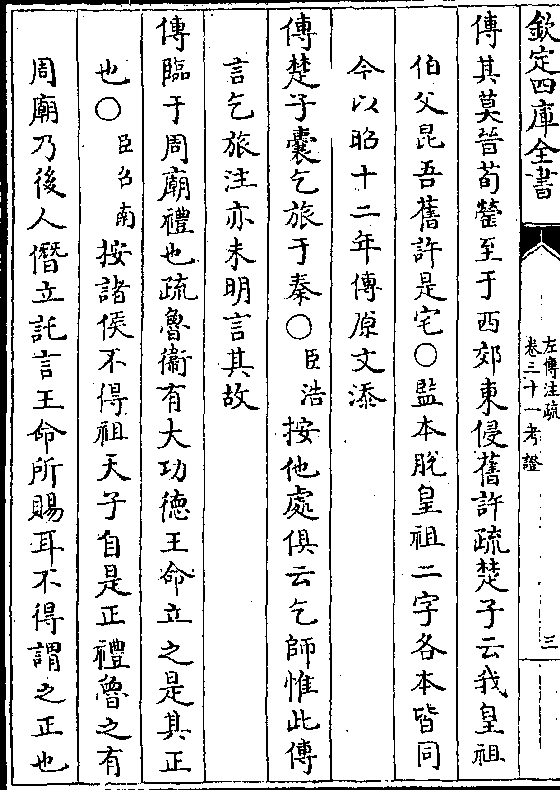 欽定四庫全書
左傳注疏
卷三十一考證
三
傳其莫晉荀罃至于西郊東侵舊許疏楚子云我皇祖
伯父昆吾舊許是宅〇監本脫皇祖二字各本皆同
今以昭十二年傳原文添
傳楚子囊乞旅于秦〇臣浩按他處俱云乞師惟此傳
言乞旅注亦未明言其故
傳臨于周廟禮也疏魯衞有大功德王命立之是其正
也〇臣召南按諸侯不得祖天子自是正禮魯之有
周廟乃後人僭立託言王命所賜耳不得謂之正也